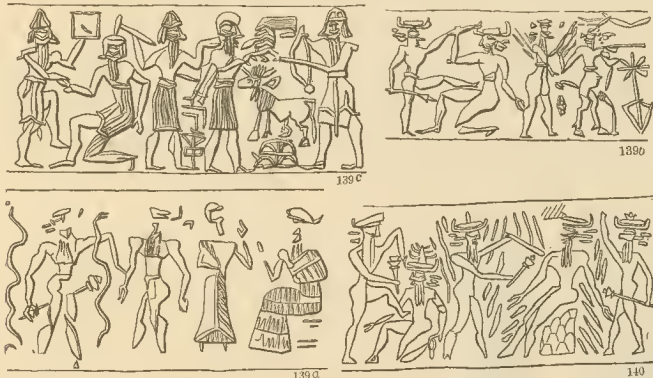 139c
139b
139a
140